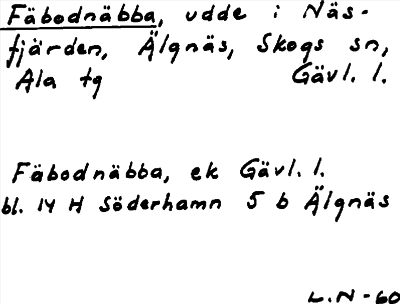 Fäbodnäbba, udde i Näs-
fjärden, Älgnäs, Skogs sn,
Ala tg Gävl. l.
Fäbodnäbba, ek Gävl. l.
bl. 14 H Söderhamn 5 b Älgnäs
L.N-60